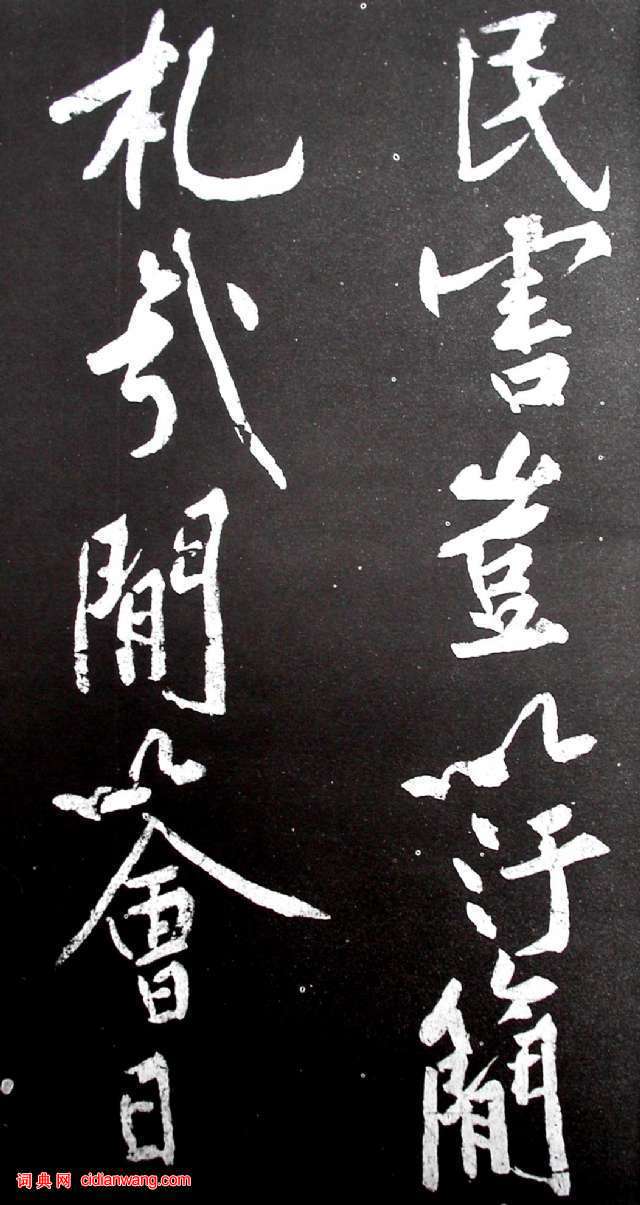 民害豈以汙簡
札哉閒以會日
词典网 cidianwang.com